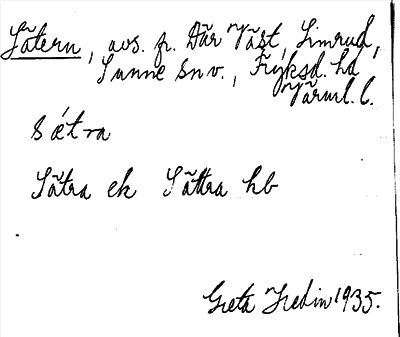 Sätern, avs. fr. Där Väst, Limrud,
Sunne snv., Fryksd. hd
Värml. l.
sǽtra
Sätra ek Sättra hb
Greta Hedin 1935.